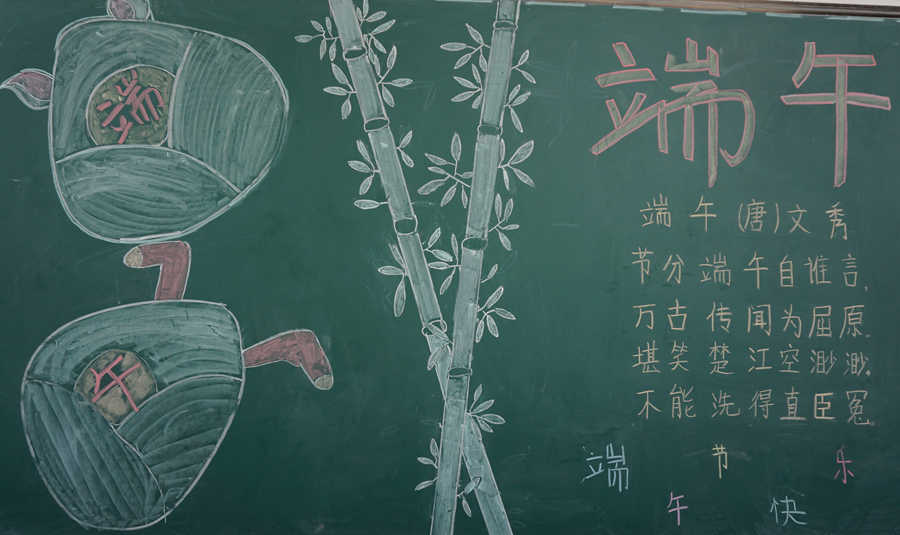 端
午
端午
端午(唐)文秀
节分端午自谁言,
万古传闻为屈原。
堪笑楚江空渺渺。
不能洗得直臣冤。
端午节快乐